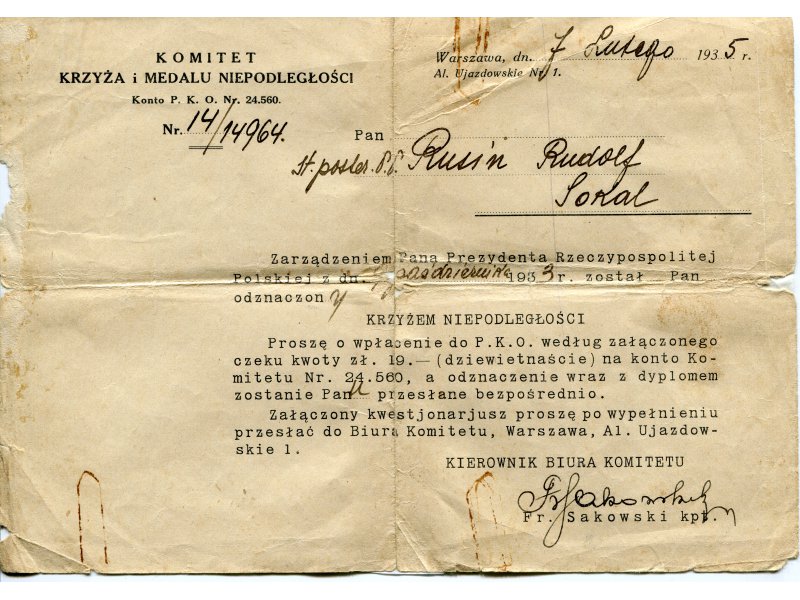 KOMITET
KRZYŻA i MEDALU NIEPODLEGŁOŚCI
Konto P. K. O. Nr. 24.560.
Nr. 14/14964.
Warszawa, dn. 7 Lutego 1935 r.
Al. Ujazdowskie Nr. 1.
Pan
st. poster. P.P. Rusin Rudolf
Sokal
Zarządzeniem Pana Prezydenta Rzeczypospolitej
Polskiej z dn. października 1933 r. został Pan
odznaczony
KRZYŻEM NIEPODLEGŁOŚCI
Proszę o wpłacenie do P.K.O. według załączonego
czeku kwoty zł. 19.— (dziewietnaście) na konto Ko-
mitetu Nr. 24.560, a odznaczenie wraz z dyplomem
zostanie Panu przesłane bezpośrednio.
Załączony kwestjonarjusz proszę po wypełnieniu
przesłać do Biura Komitetu, Warszawa, Al. Ujazdow-
skie 1.
KIEROWNIK BIURA KOMITETU
Fr. Sakowski
Fr. Sakowski kpt.